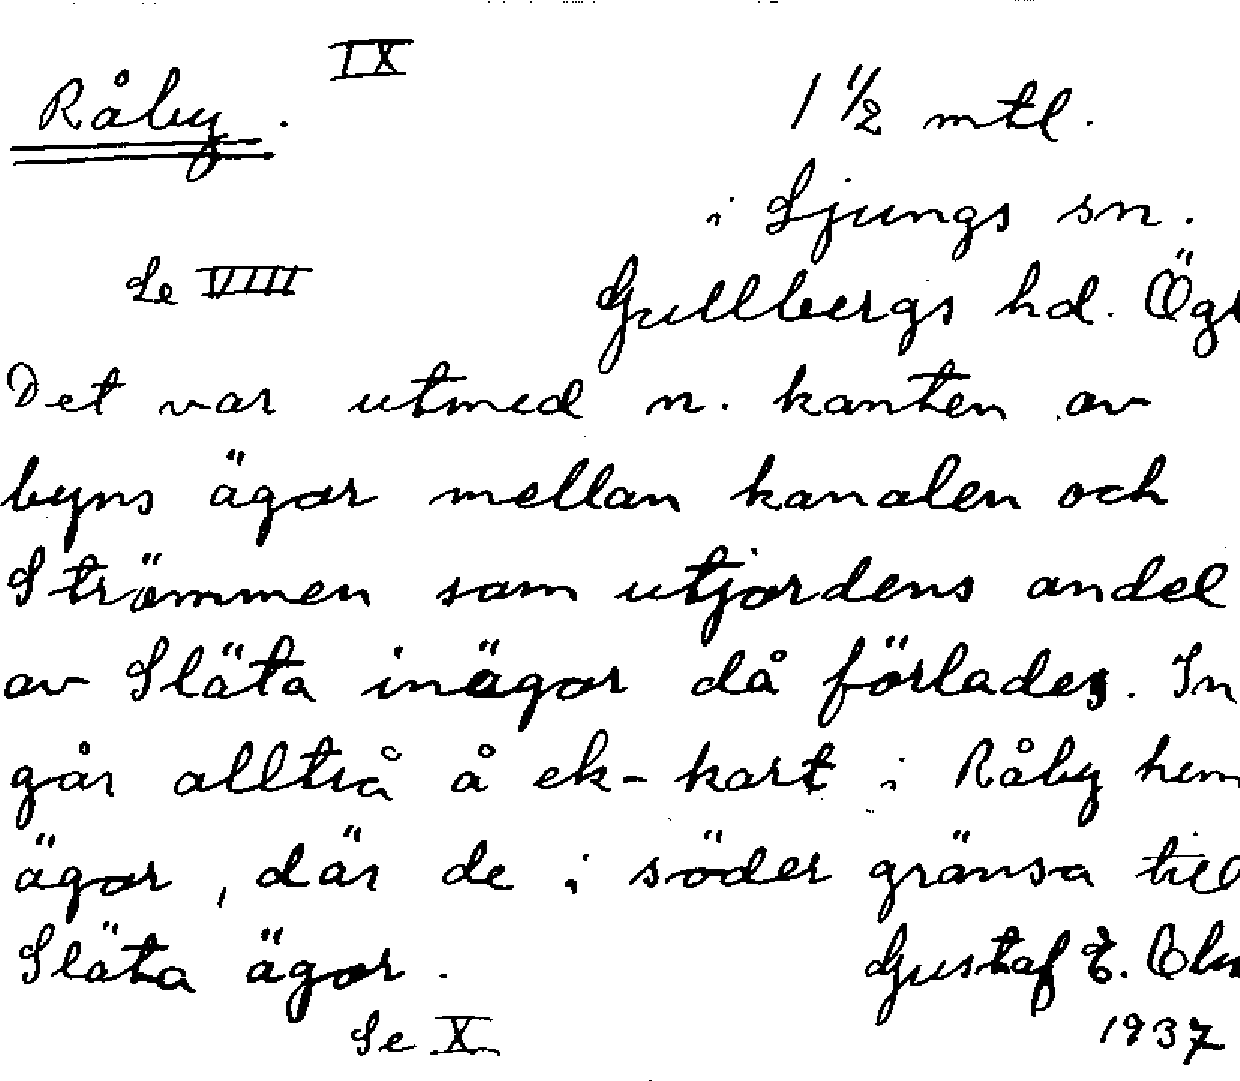 IX
Råby.
1 1/2 mtl.
i Ljungs sn.
Se VIIII
Gullbergs hd. Ög
Det var utmed n. kanten av
byns ägor mellan kanalen och
Strömmen som utjordens andel
av Släta inägor då förlades. In
går alltså å ek-kart i Råby hem
ägor, där de i söder gränsa till
Släta ägor.
Gustaf E.
Se X
1937